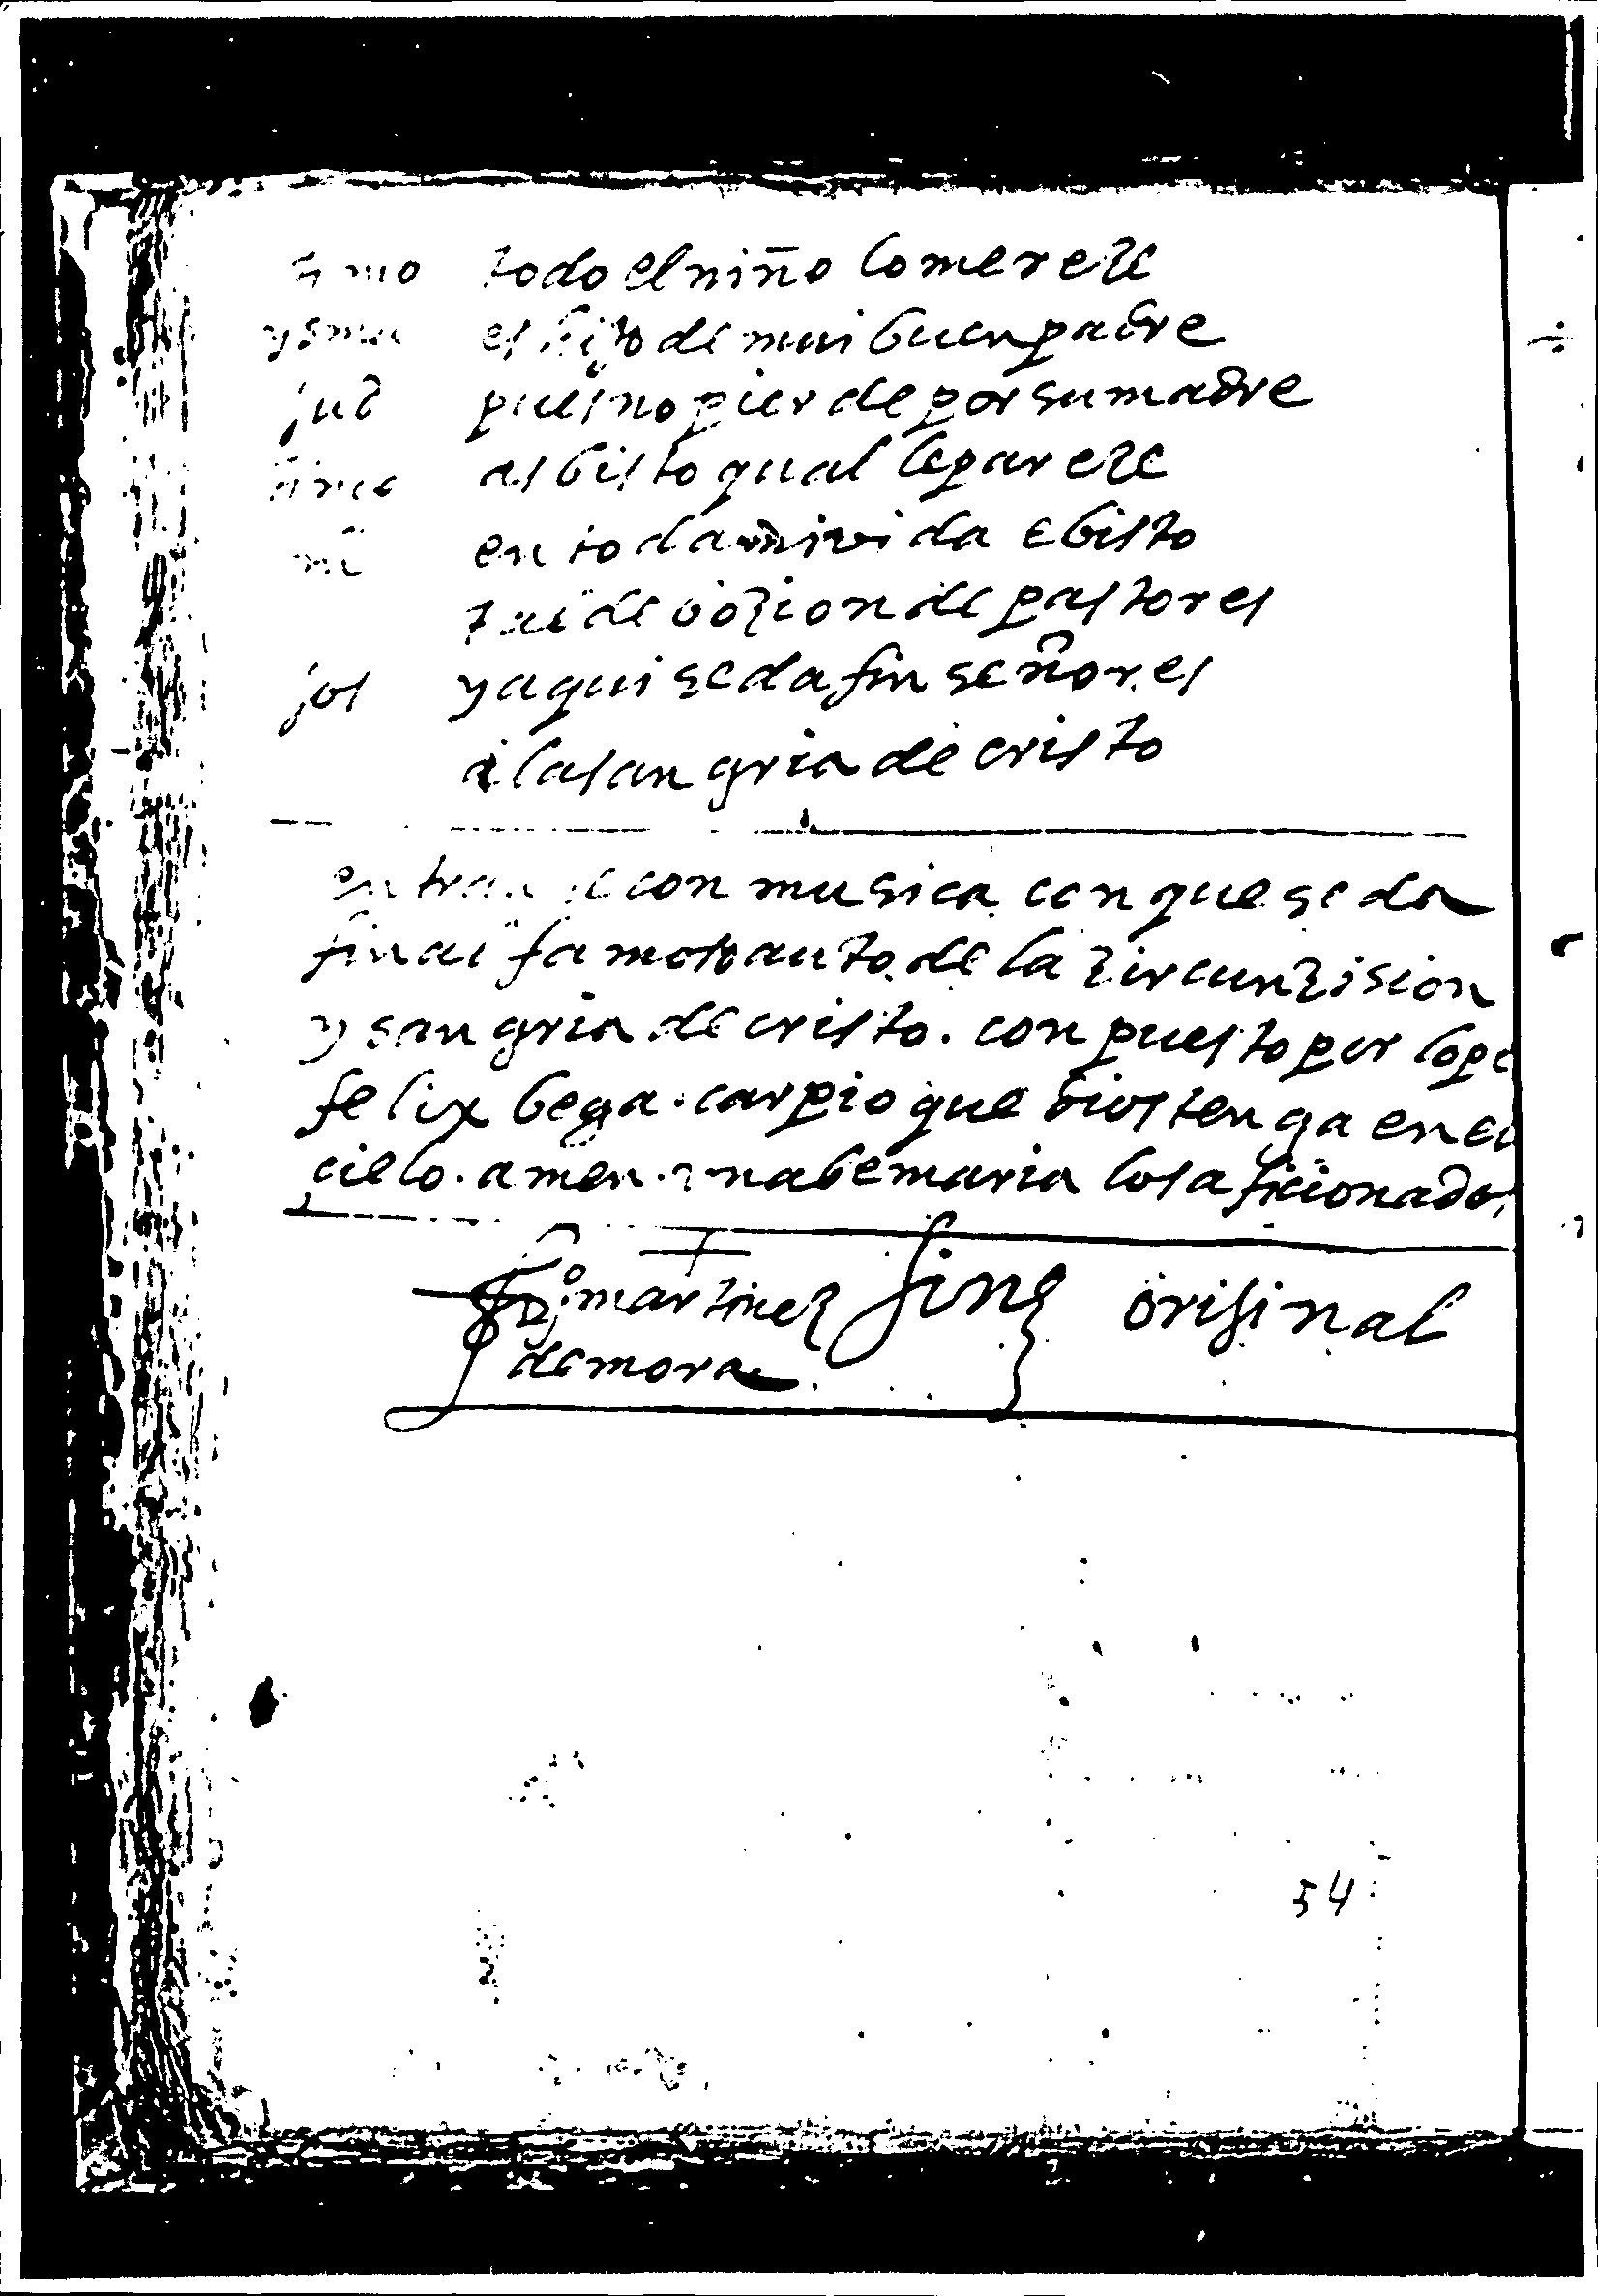 simo todo el niño lo mereze
ysma es hijo de mui buen padre
jud pues no pierde por su madre
simo as bisto qual le pareze
en toda mi vida e bisto
tal debozion de pastores
jos y aqui se da fin señores
a la sangria de cristo
entran se con musica con que se da
fin al famoso auto de la zircunzision
y sangria de cristo. conpuesto por lope
felix bega. carpio que dios tenga en el
cielo. amen. abemaria los aficionados
martinez finis orijinal
de mora
54